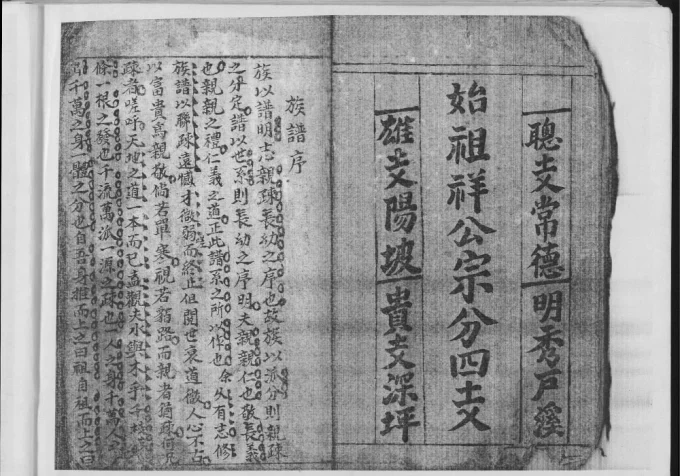 聰支常德 明秀戶溪
始祖祥公宗分四支
雄支陽坡 貴支深坪
族譜序
族以譜明志親疎長幼之序也故族以派分則親疎
之分定譜以世系則長幼之序明夫親親仁也敬長義
也親親之禮仁義之道正此譜系之所以作也余久有志修
族譜以聯疎遠憾才微弱而終止但閱世衰道微人心不古
以富貴爲親敬倘若單寒視若貊路而親者猶疎何况
疎者嗟呼天地之道一本而已盍觀夫水與木乎千枝
條一根之發也千流萬派一源之疎也一人之身千萬人
千萬之身一體之分也自吾身推而上之曰祖自祖而上之曰